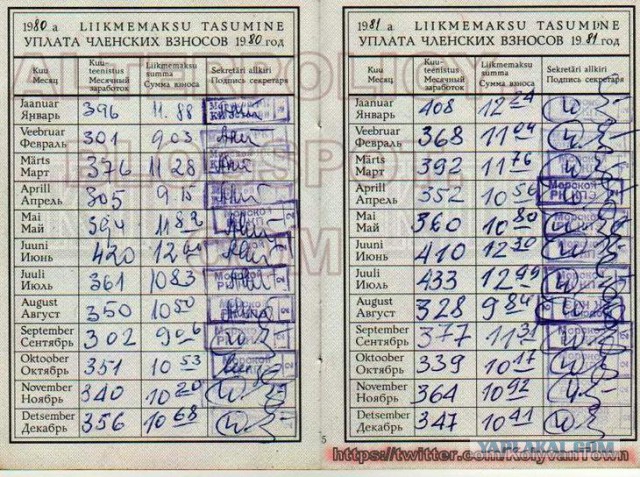 1980 a LIIKMEMAKSU TASUMINE
УПЛАТА ЧЛЕНСКИХ ВЗНОСОВ 1980 год
Kuu Kuu-teenistus Liikmemaksu summa Sekretäri allkiri
Месяц Месячный заработок Сумма взноса Подпись секретаря
Jaanuar
Январь 396 11.88
Veebruar
Февраль 301 9.03
Märts
Март 376 11 28
Aprill
Апрель 305 9.15
Mai
Май 394 11 82
Juuni
Июнь 420 12 60
Juuli
Июль 361 10 83
August
Август 350 10 50
September
Сентябрь 302 9 06
Oktoober
Октябрь 351 10 53
November
Ноябрь 340 10 20
Detsember
Декабрь 356 10 68
5
1981 a LIIKMEMAKSU TASUMINE
УПЛАТА ЧЛЕНСКИХ ВЗНОСОВ 1981 год
Kuu Kuu-teenistus Liikmemaksu summa Sekretäri allkiri
Месяц Месячный заработок Сумма взноса Подпись секретаря
Jaanuar
Январь 408 12 24
Veebruar
Февраль 368 11 04
Märts
Март 392 11 76
Aprill
Апрель 352 10 56
Морской
РК КПЭ
Mai
Май 360 10 80
Juuni
Июнь 410 12 30
Juuli
Июль 433 12 99
August
Август 328 9 84
September
Сентябрь 377 11 31
Oktoober
Октябрь 339 10 17
November
Ноябрь 364 10 92
Detsember
Декабрь 347 10 41
YAPLAKAL.COM
https://twitter.com/KolyvanTown